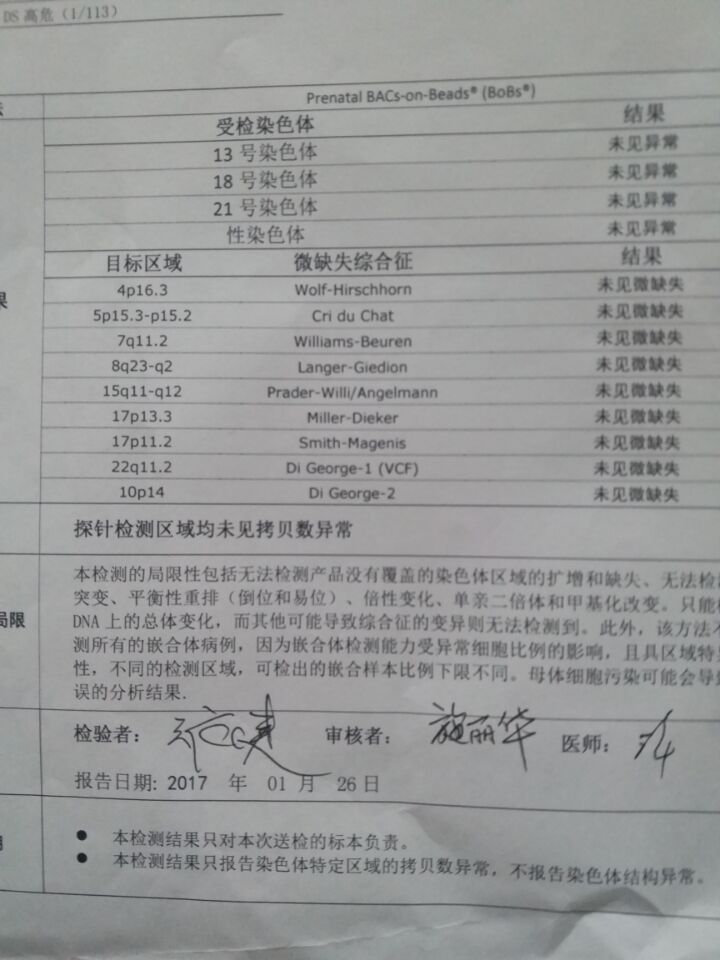 DS 高危（1/113）
Prenatal BACs-on-Beads® (BoBs®)
受检染色体 结果
13 号染色体 未见异常
18 号染色体 未见异常
21 号染色体 未见异常
性染色体 未见异常
目标区域 微缺失综合征 结果
4p16.3 Wolf-Hirschhorn 未见微缺失
5p15.3-p15.2 Cri du Chat 未见微缺失
7q11.2 Williams-Beuren 未见微缺失
8q23-q2 Langer-Giedion 未见微缺失
15q11-q12 Prader-Willi/Angelmann 未见微缺失
17p13.3 Miller-Dieker 未见微缺失
17p11.2 Smith-Magenis 未见微缺失
22q11.2 Di George-1 (VCF) 未见微缺失
10p14 Di George-2 未见微缺失
探针检测区域均未见拷贝数异常
本检测的局限性包括无法检测产品没有覆盖的染色体区域的扩增和缺失、无法检
局限 突变、平衡性重排（倒位和易位）、倍性变化、单亲二倍体和甲基化改变。只能
DNA 上的总体变化，而其他可能导致综合征的变异则无法检测到。此外，该方法
测所有的嵌合体病例，因为嵌合体检测能力受异常细胞比例的影响，且具区域特
性，不同的检测区域，可检出的嵌合样本比例下限不同。母体细胞污染可能会导
误的分析结果.
检验者： 审核者：施丽华 医师：
报告日期: 2017 年 01 月 26 日
● 本检测结果只对本次送检的标本负责。
● 本检测结果只报告染色体特定区域的拷贝数异常，不报告染色体结构异常。